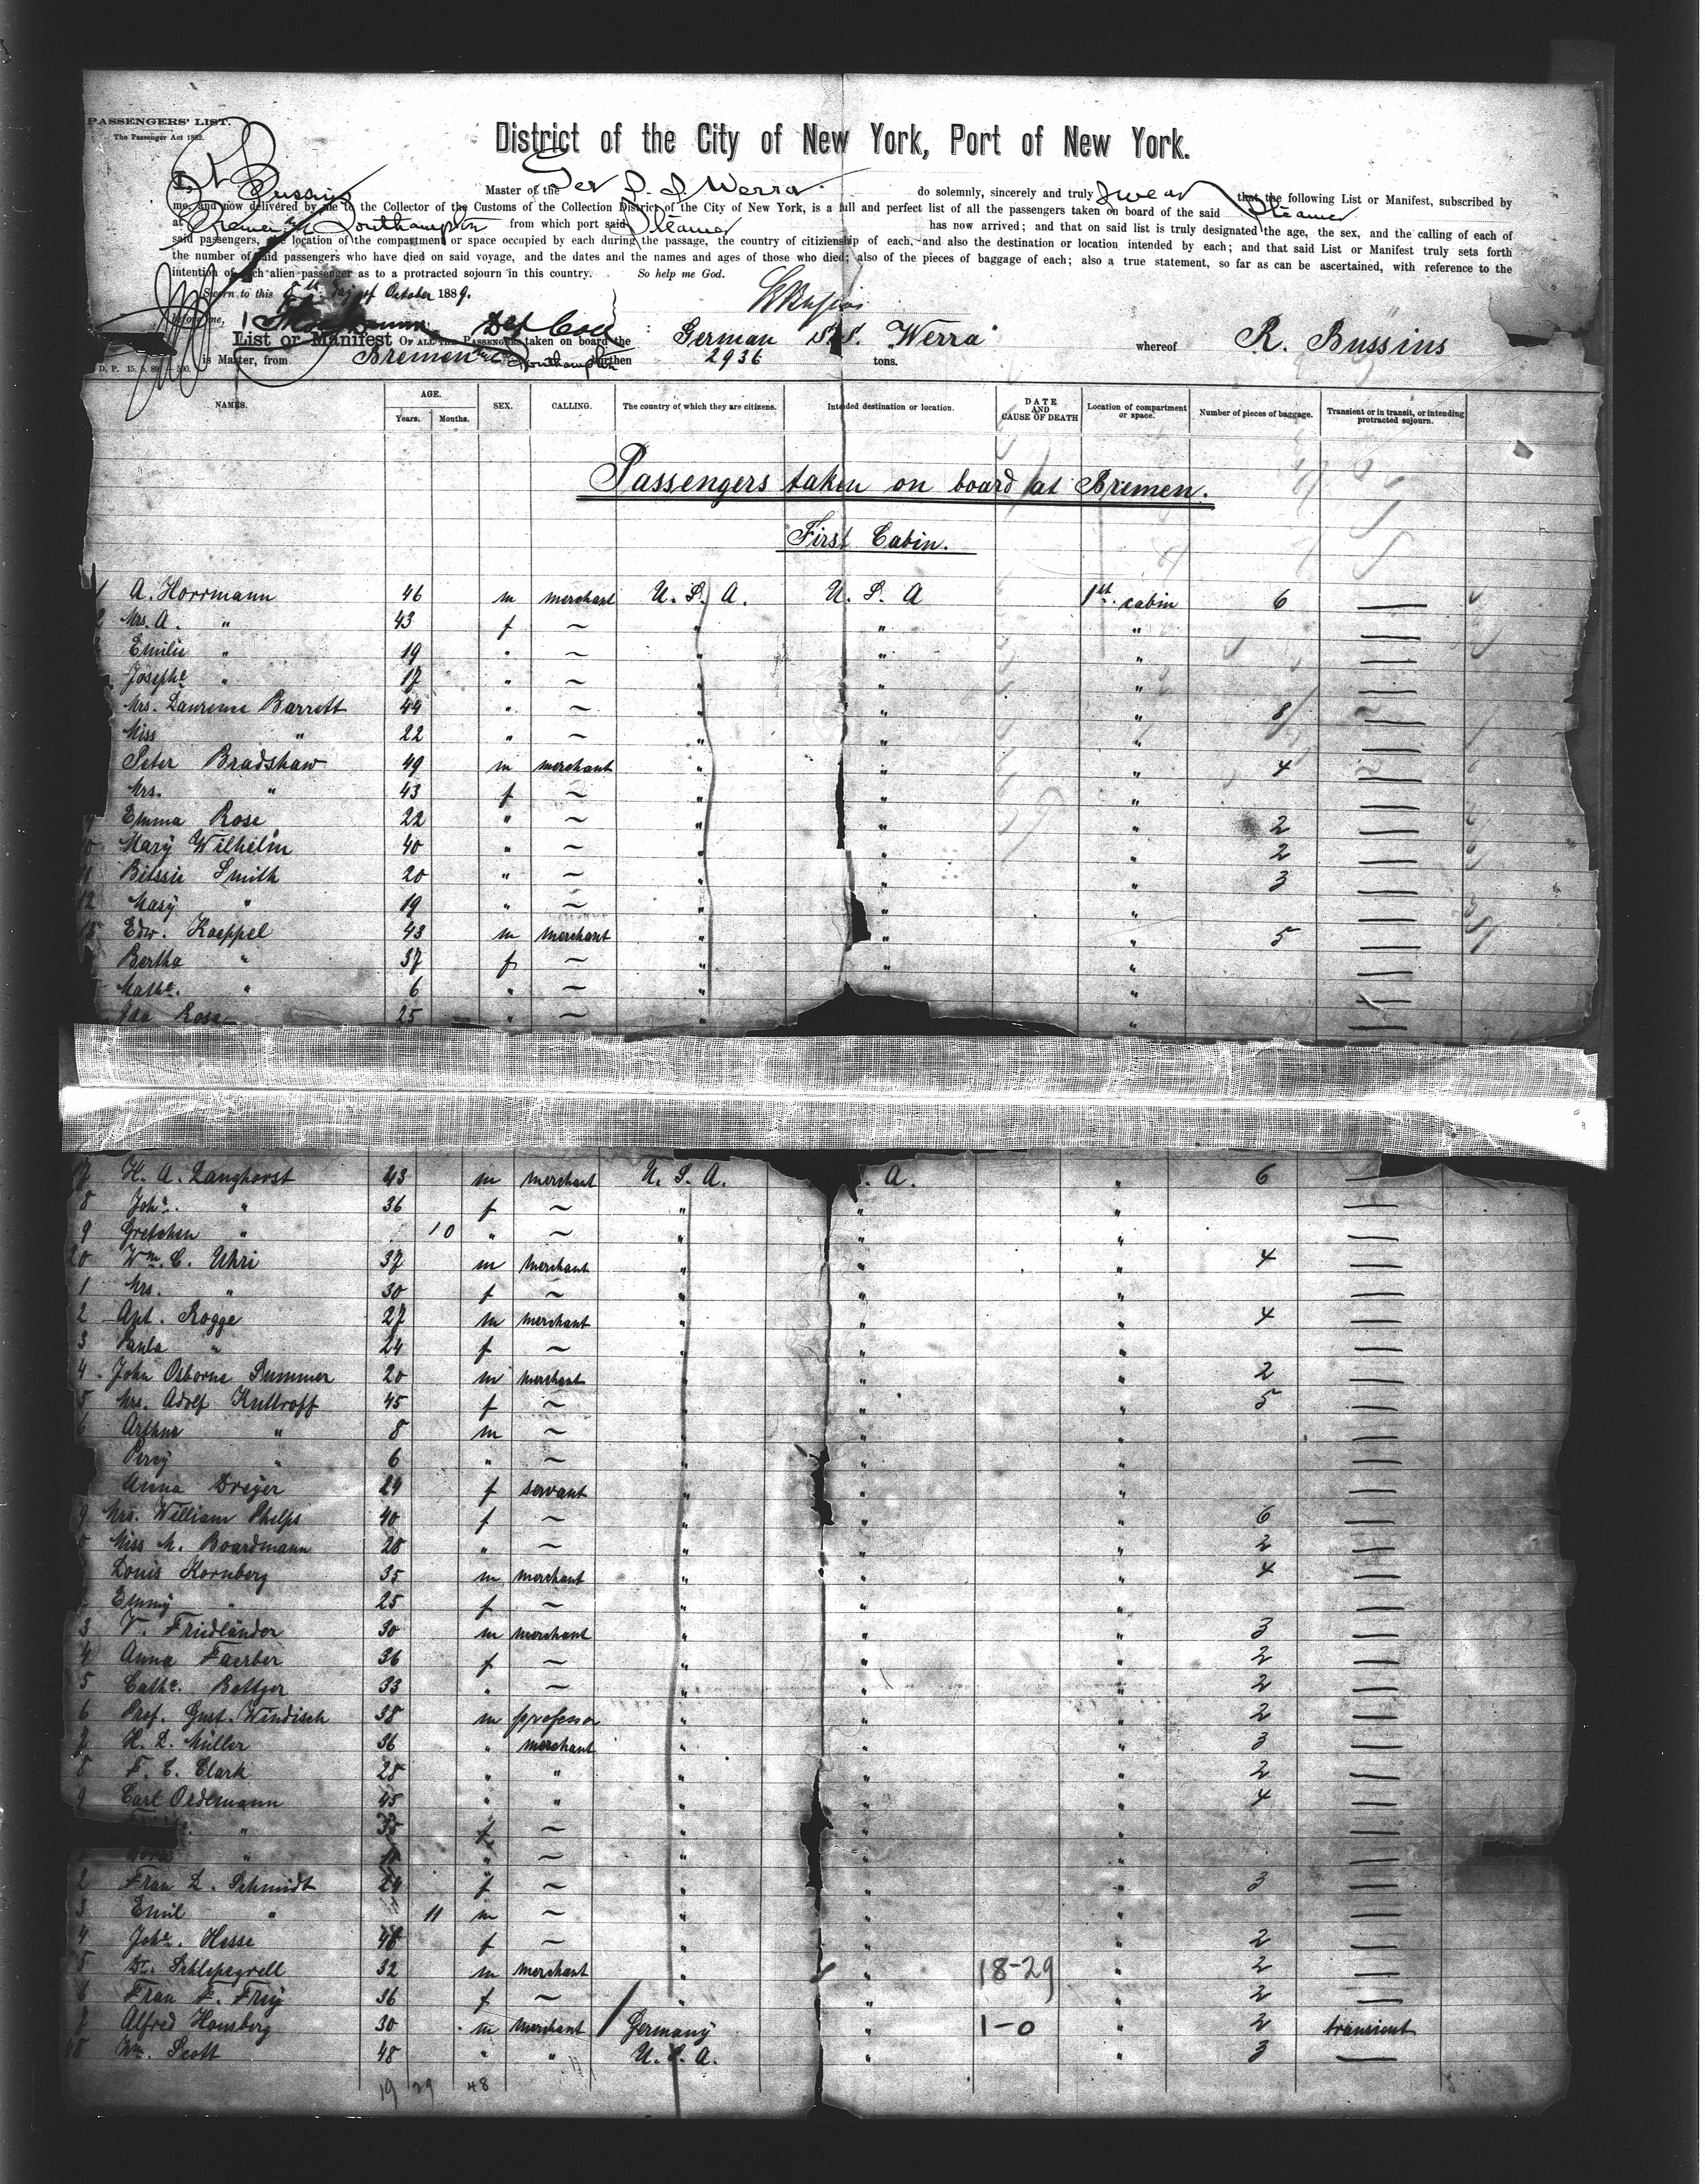 PASSENGERS' LIST.
The Passenger Act 1882.
District of the City of New York, Port of New York.
I, R. Bussius Master of the Ger S. S. Werra do solemnly, sincerely and truly swear that the following List or Manifest, subscribed by
me, and now delivered by me to the Collector of the Customs of the Collection District of the City of New York, is a full and perfect list of all the passengers taken on board of the said Steamer
at Bremen & Southampton from which port said Steamer has now arrived; and that on said list is truly designated the age, the sex, and the calling of each of
said passengers, the location of the compartment or space occupied by each during the passage, the country of citizienship of each, and also the destination or location intended by each; and that said List or Manifest truly sets forth
the number of said passengers who have died on said voyage, and the dates and the names and ages of those who died; also of the pieces of baggage of each; also a true statement, so far as can be ascertained, with reference to the
intention of each alien passenger as to a protracted sojourn in this country. So help me God.
Sworn to this 5th day of October 1889.
R Bussius
before me, Dep Coll
List or Manifest OF ALL THE PASSENGERS taken on board the German S.S. Werra whereof R. Bussius
is Master, from Bremen and Southampton burthen 2936 tons.
D. P. 15. 5. 89. — 500.
NAMES. AGE. Years. Months. SEX. CALLING. The country of which they are citizens. Intended destination or location. DATE AND CAUSE OF DEATH Location of compartment or space. Number of pieces of baggage. Transient or in transit, or intending protracted sojourn.
Passengers taken on board at Bremen.
First Cabin.
1 A. Horrmann 46 m merchant U. S. A. U. S. A 1st cabin 6 —
2 Mrs. A. " 43 f ~ " " " —
Emilie " 19 " ~ " " " —
Josephe " 17 " ~ " " " —
Mrs. Laurence Barrett 44 " ~ " " " 8 —
Miss " 22 " ~ " " " —
Peter Bradshaw 49 m merchant " " " 4 —
Mrs. " 43 f ~ " " " —
9 Emma Rose 22 " ~ " " " 2 —
10 Mary Wilhelm 40 " ~ " " " 2 —
11 Bessie Smith 20 " ~ " " " 3 —
12 Mary " 19 " ~ " " " —
13 Edw. Kaeppel 43 m merchant " " " 5 —
Bertha " 37 f ~ " " " —
Mathe. " 6 " ~ " " —
Ida Rose 25 " ~ " " —
17 H. A. Langhorst 43 m merchant U. S. A. . A. " 6 —
8 Joha. " 36 f ~ " " " —
9 Gretchen " 10 " ~ " " " —
20 Wm. C. Uhri 37 m merchant " " " 4 —
1 Mrs. " 30 f ~ " " " —
2 Apt. Rogge 27 m merchant " " " 4 —
3 Paula " 24 f ~ " " " —
4 John Osborne Summer 20 m merchant " " " 2 —
5 Mrs. Adolf Kuttroff 45 f ~ " " " 5 —
6 Arthur " 8 m ~ " " " —
Percy " 6 " ~ " " " —
Anna Dreyer 24 f servant " " " —
9 Mrs. William Phelps 40 f ~ " " " 6 —
0 Miss M. Boardmann 28 " ~ " " " 2 —
Louis Kornberg 35 m merchant " " " 4 —
Emmy " 25 f ~ " " " —
3 V. Friedländer 30 m merchant " " " 3 —
4 Anna Faerber 36 f ~ " " " 2 —
5 Cathe. Bottger 33 " ~ " " " 2 —
6 Prof. Gust. Windisch 38 m professor " " " 2 —
7 H. L. Müller 36 " merchant " " " 3 —
8 F. C. Clark 28 " " " " " 2 —
9 Carl Ordemann 45 " " " " " 4 —
" 33 f ~ " " " —
" " ~ " " " —
2 Frau L. Schmidt 29 f ~ " " " 3 —
3 Emil " 11 m ~ " " " —
4 Johe. Hesse 48 f ~ " " " 2 —
5 Dr. Schlepegrell 32 m merchant " " 18-29 " 2 —
6 Frau F. Frey 36 f ~ " " " 2 —
7 Alfred Honsberg 30 m merchant Germany " 1-0 " 2 transient
48 Wm. Scott 48 " " U. S. A. " " 3 —
19 29 48